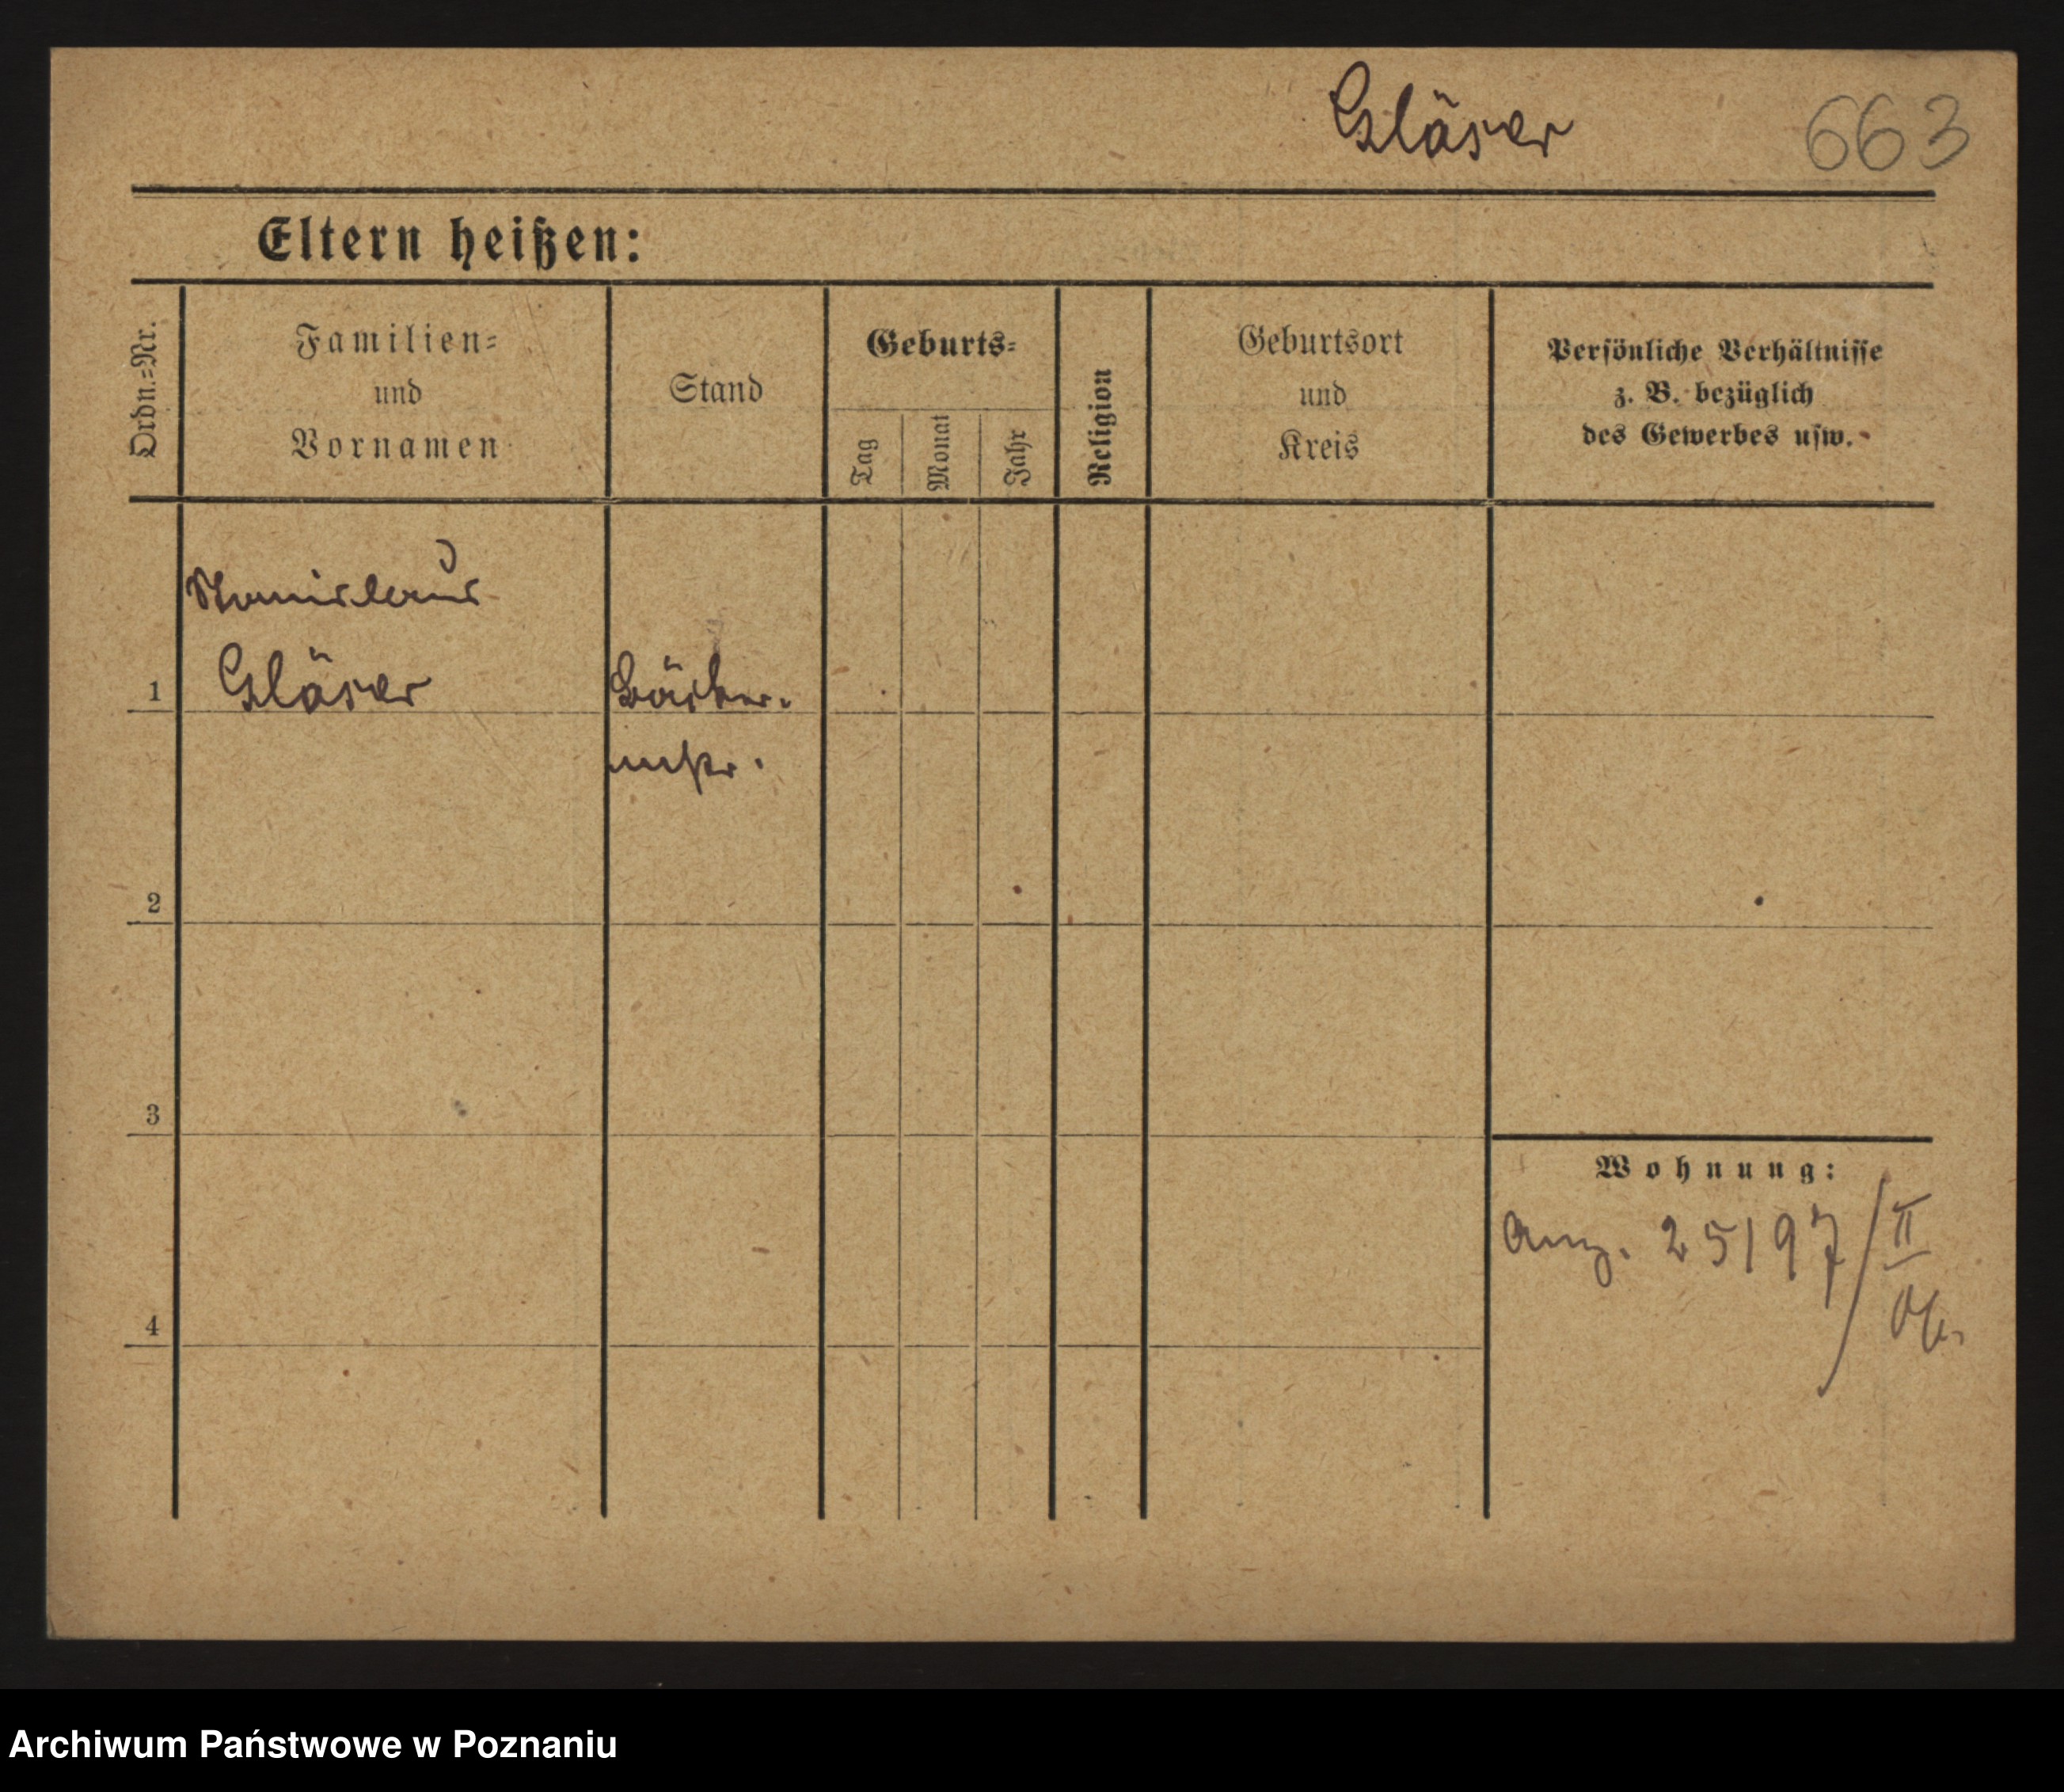 Gläser 663
Eltern heißen:
Ordn.=Nr.
Familien=
und
Vornamen
Stand
Geburts=
Tag
Monat
Jahr
Religion
Geburtsort
und
Kreis
Persönliche Verhältnisse
z. B. bezüglich
des Gewerbes usw.
Stanislaus
1 Gläser Bäcker-
mstr.
2
3
4
Wohnung:
Anz. 25197/II
Archiwum Państwowe w Poznaniu